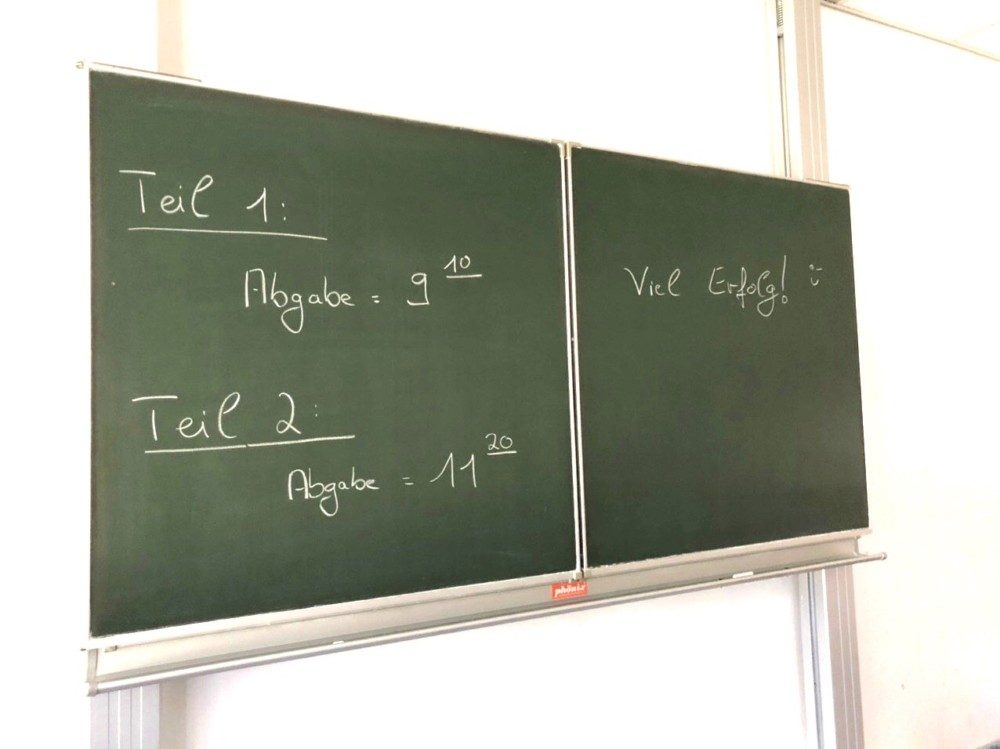 Teil 1:
Abgabe = 9 10
Teil 2:
Abgabe = 11 20
Viel Erfolg! ü
phönix